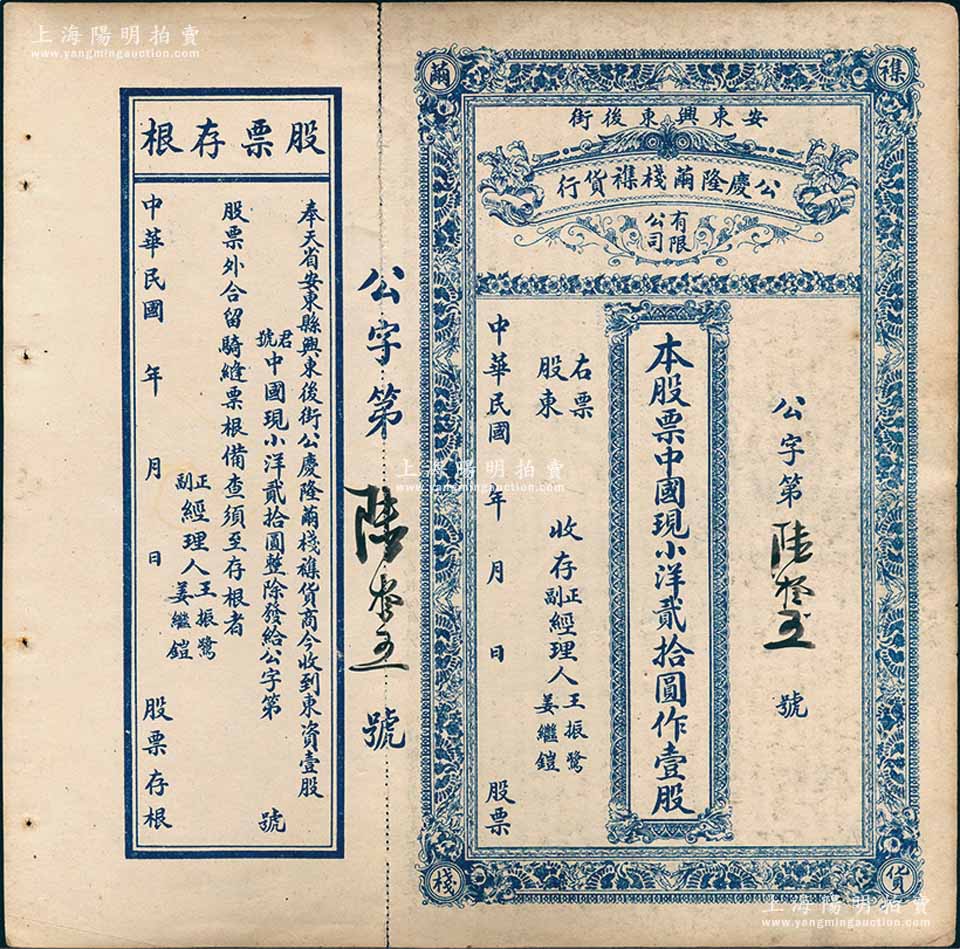 上海陽明拍賣
www.yangmingauction.com
繭
襍
安東興東後街
公慶隆繭棧襍貨行
有限公司
公字第陸叁五號
本股票中國現小洋貳拾圓作壹股
右票
股東
收存正副經理人王振鷺
姜繼鎧
中華民國年月日股票
棧
貨
公字第陸叁五號
股票存根
奉天省安東縣興東後街公慶隆繭棧襍貨商今收到東資壹股
君號中國現小洋貳拾圓整除發給公字第號
股票外合留騎縫票根備查須至存根者
正副經理人王振鷺
姜繼鎧
中華民國年月日股票存根
上海陽明拍賣
www.yangmingauction.com
上海陽明拍賣
www.yangmingauction.com